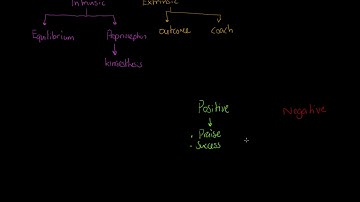 Intrinsic Extrinsic
Equilibrium Proprioception outcome coach
kinesthesis
Positive Negative
• Praise
• Success